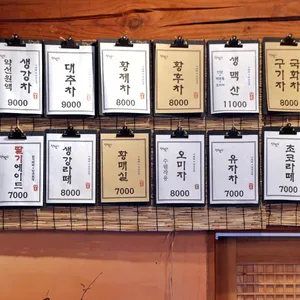 생강차
약선원액
9000
대추차
9000
황제차
9000
황후차
9000
생맥산
11000
국화차
구기차
8000
딸기에이드
7000
생강라떼
8000
황매실
7000
오미자
8000
유자차
7000
초코라떼
7000